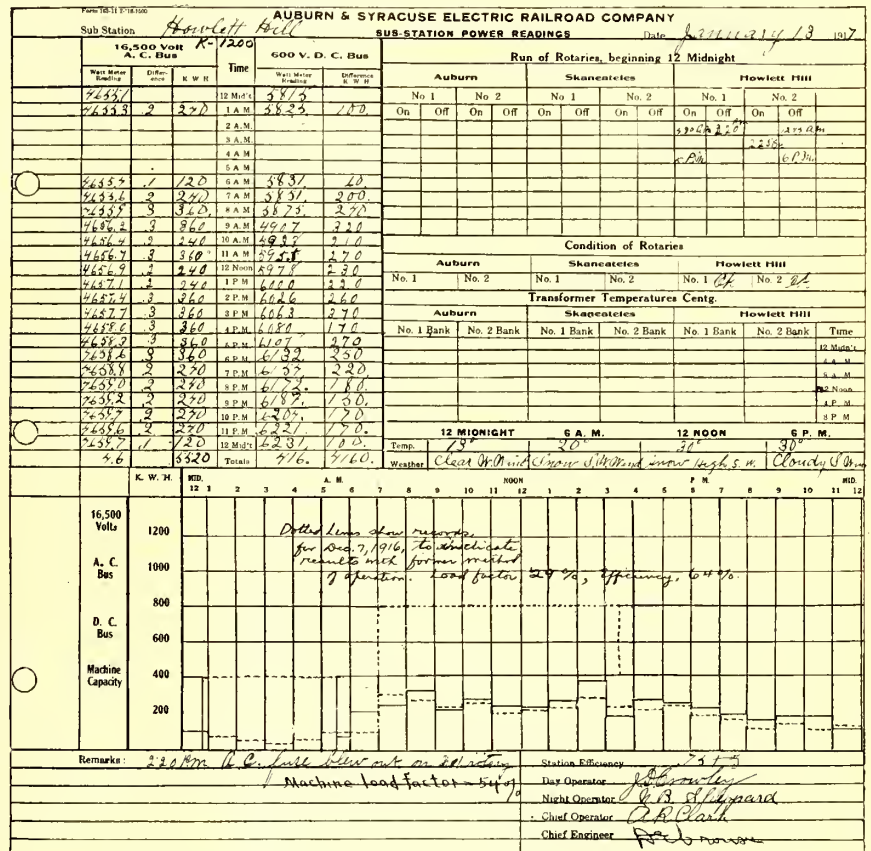 Form 163-11
AUBURN & SYRACUSE ELECTRIC RAILROAD COMPANY
Sub Station Howlett Hill SUB-STATION POWER READINGS Date January 13 1917
16,500 Volt A. C. Bus K-1200 Time 600 V. D. C. Bus
Watt Meter Reading Difference K W H Watt Meter Reading Difference K W H
4655.1 12 Mid't 5815
4655.3 .2 240 1 A M 5825 100.
2 A.M.
3 A.M.
4 A M
5 A M
4655.4 .1 120 6 A M 5831
4655.6 2 240 7 A M 5851. 200.
4655.9 3 360. 8 A M 5875. 240
4656.2 .3 360 9 A M 4907 320
4656.4 .2 240 10 A.M 4938 210
4656.7 .3 360 11 A M 5955 270
4656.9 .2 240 12 Noon 5978 230
4657.1 .2 240 1 P M 6000 220
4657.4 .3 360 2 P.M. 6026 260
4657.7 .3 360 3 P.M 6063 370
4658.0 .3 360 4 P.M. 6080 170
4658.3 .3 360 5 P.M. 6107 270
4658.6 3 360 6 P.M. 6132 250
4658.8 2 240 7 P.M. 220
4659.0 .2 240 8 P.M. 6172. 180.
4659.2 2 240 9 P.M. 6187. 150.
2 240 10 P.M 6204. 170
4659.6 2 240 11 P.M. 6221 170.
4659.7 .1 120 12 Mid't 6231 100.
4.6 5520 Totals 416. 4160.
Run of Rotaries, beginning 12 Midnight
Auburn Skaneateles Howlett Hill
No 1 No 2 No 1 No. 2 No. 1 No. 2
On Off On Off On Off On Off On Off On Off
6 P.M.
Condition of Rotaries
Auburn Skaneateles Howlett Hill
No. 1 No. 2 No. 1 No. 2 No. 1 Ok No. 2 Ok
Transformer Temperatures Centg.
Auburn Skaneateles Howlett Hill
No. 1 Bank No. 2 Bank No. 1 Bank No. 2 Bank No. 1 Bank No. 2 Bank Time
12 Midn't
12 Noon
4 P.M.
8 P M
12 MIDNIGHT 6 A. M. 12 NOON 6 P. M.
Temp. 20° 30° 30°
Weather Clear W. Wind Snow S.W. Wind snow High S. W. Cloudy S
K. W. H. MID. A. M. NOON P M. MID.
12 1 2 3 4 5 6 7 8 9 10 11 12 1 2 3 4 5 6 7 8 9 10 11 12
16,500 Volts
A. C. Bus
D. C. Bus
Machine Capacity
1200
1000
800
600
400
200
Dotted Lines show records
for Dec. 7, 1916, to indicate
results with former method
of operation. Load factor, 29%, Efficiency, 64%.
Remarks: 2:20 PM A C. fuse blew out on rotary
Machine load factor - 54%
Station Efficiency
Day Operator Crowley
Night Operator B. Sheppard
Chief Operator A R Clark
Chief Engineer